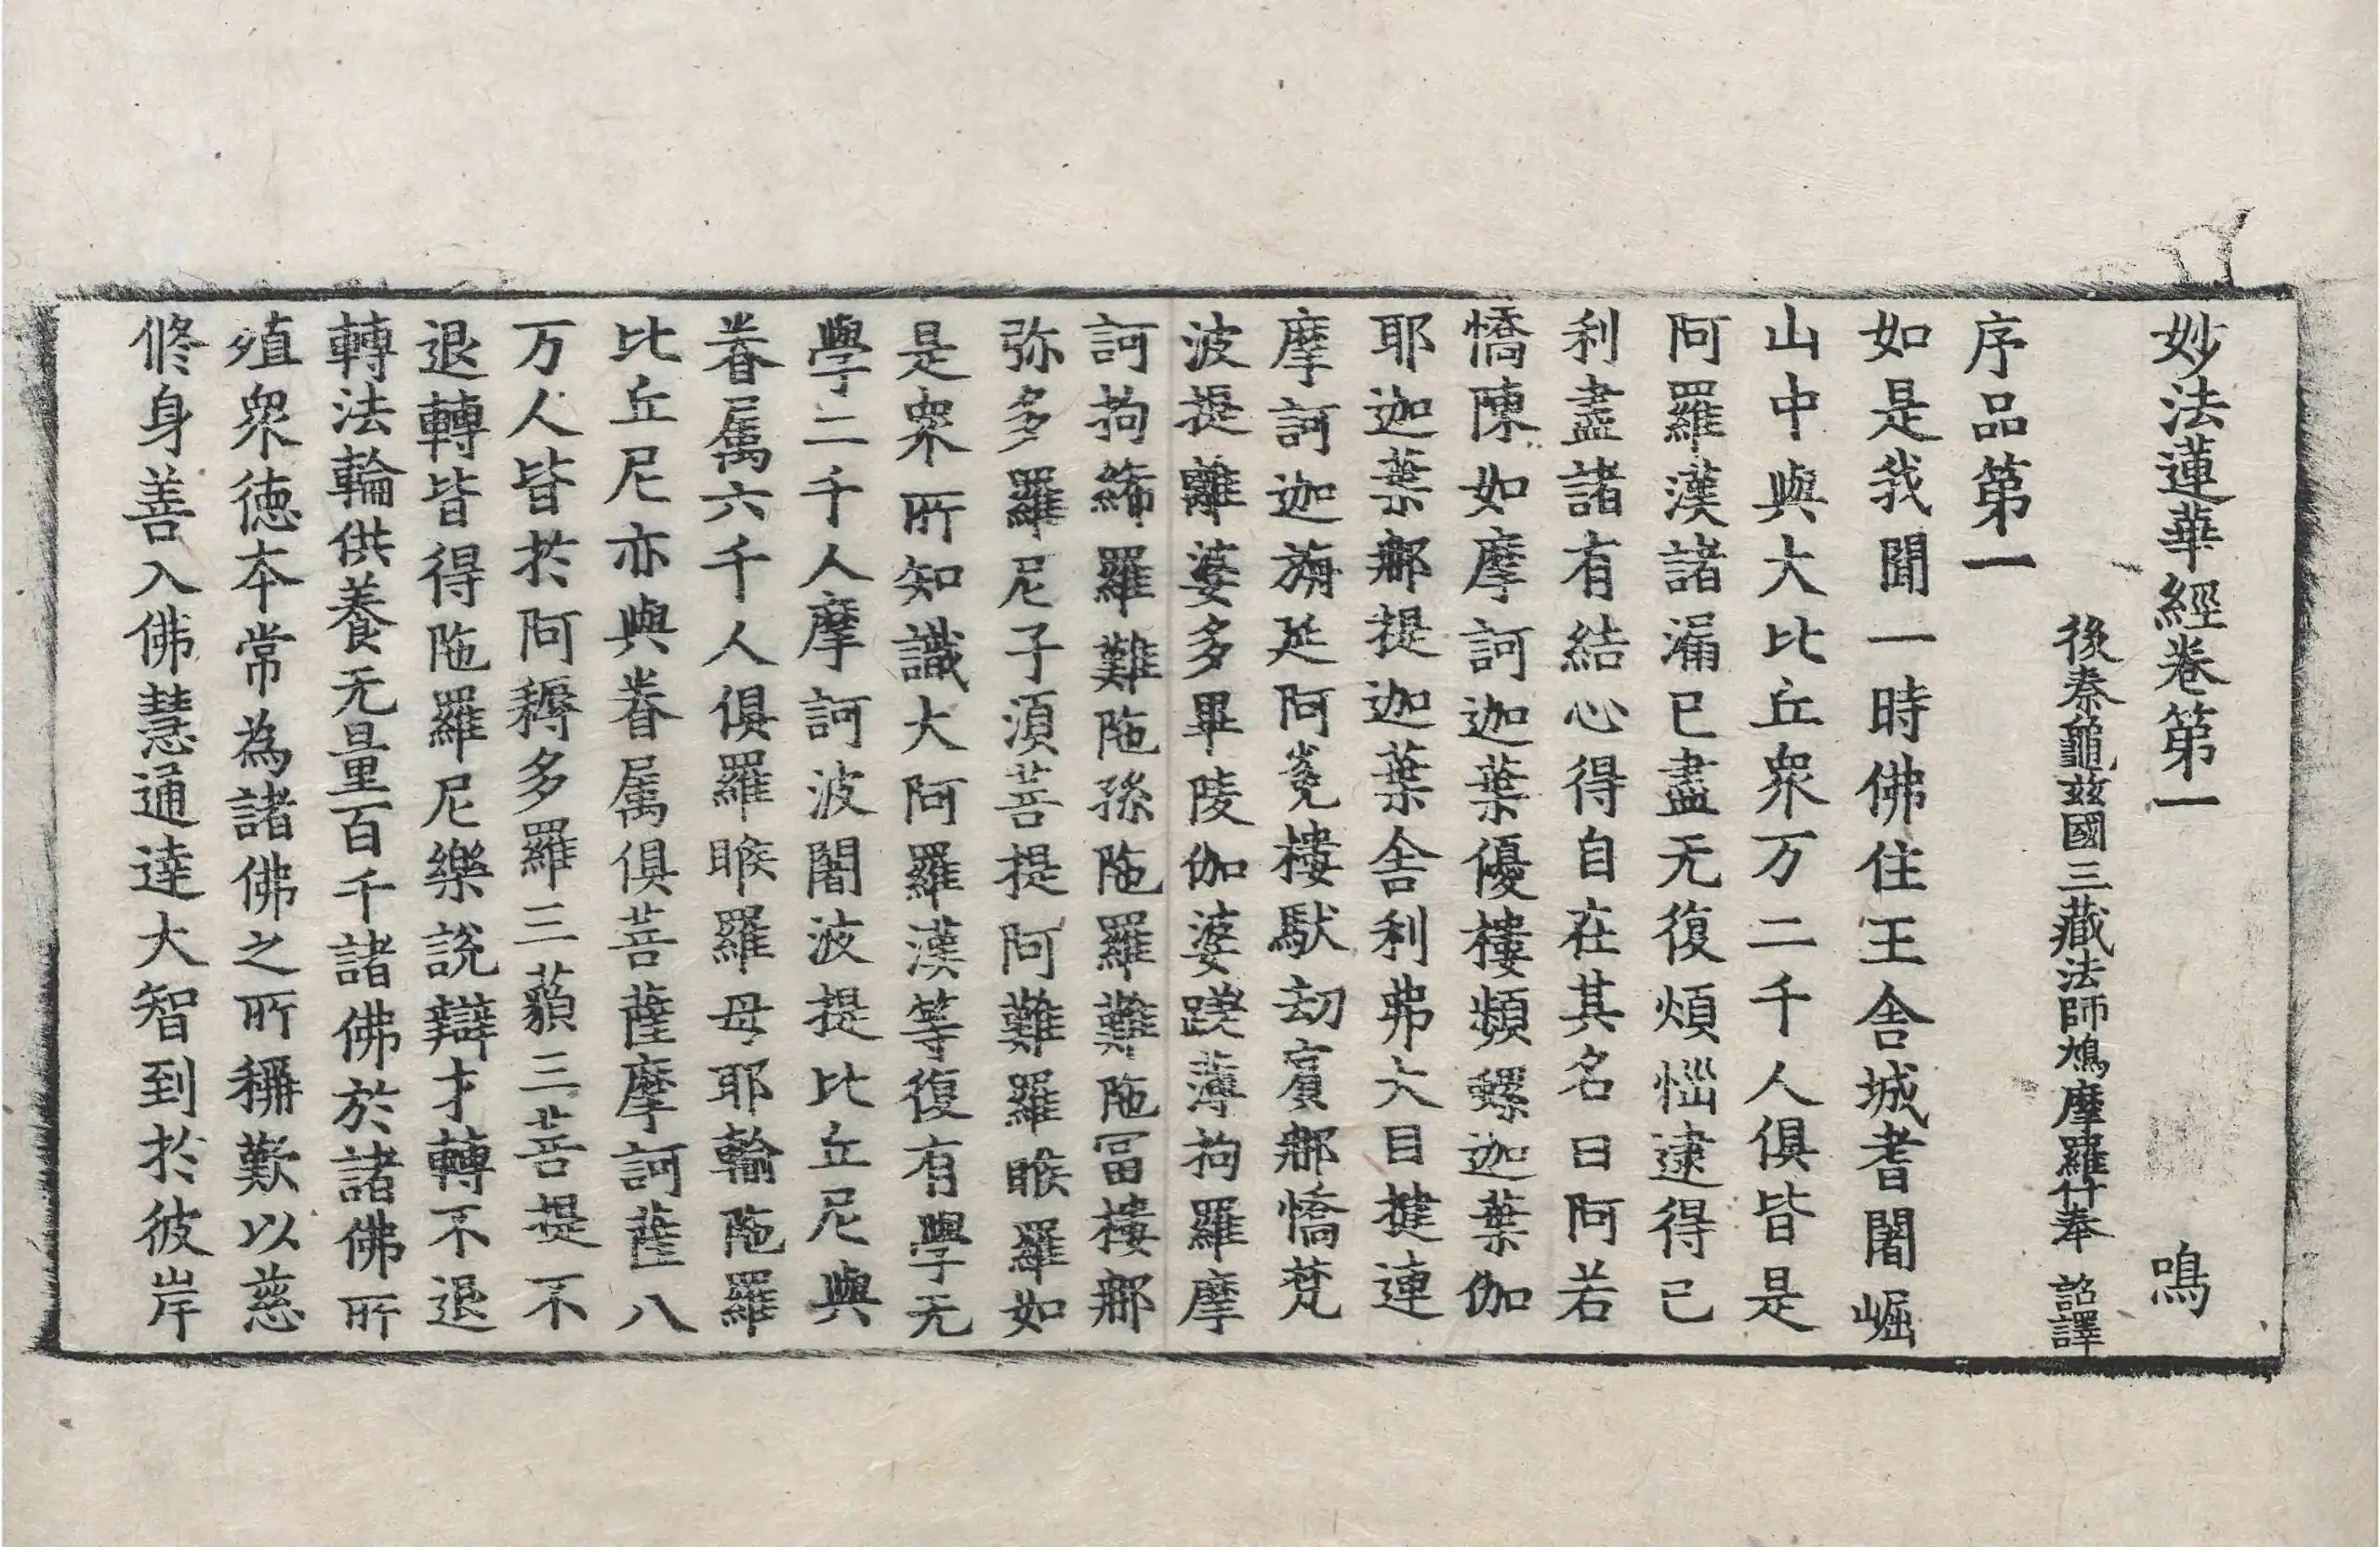 妙法蓮華經卷第一 鳴
後秦龜玆國三藏法師鳩摩羅什奉 詔譯
序品第一
如是我聞一時佛住王舍城耆闍崛
山中與大比丘衆万二千人俱皆是
阿羅漢諸漏已盡无復煩惱逮得已
利盡諸有結心得自在其名曰阿若
憍陳如摩訶迦葉優樓頻螺迦葉伽
耶迦葉那提迦葉舍利弗大目揵連
摩訶迦旃延阿㝹樓馱劫賓那憍梵
波提離婆多畢陵伽婆蹉薄拘羅摩
訶拘絺羅難陁孫陁羅難陁冨樓那
弥多羅尼子須菩提阿難羅睺羅如
是衆所知識大阿羅漢等復有學无
學二千人摩訶波闍波提比丘尼與
眷属六千人俱羅睺羅母耶輸陁羅
比丘尼亦與眷属俱菩薩摩訶薩八
万人皆於阿耨多羅三藐三菩提不
退轉皆得陁羅尼樂說辯才轉不退
轉法輪供養无量百千諸佛於諸佛所
殖衆徳本常為諸佛之所稱歎以慈
修身善入佛慧通達大智到於彼岸